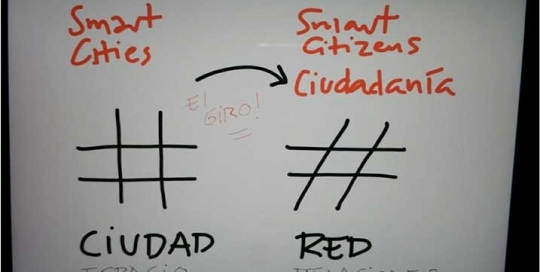 Smart
Cities
Smart
Citizens
Ciudadanía
El
GIRO!
CIUDAD
RED
ESPACIO
RELACIONES